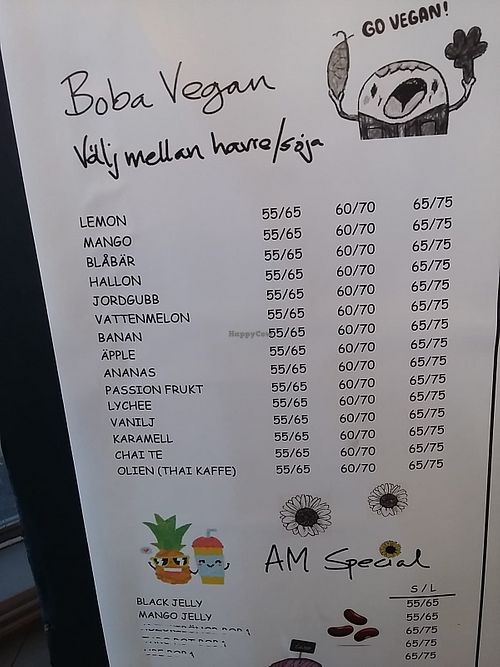 GO VEGAN!
Boba Vegan
Välj mellan havre/soja
LEMON 55/65 60/70 65/75
MANGO 55/65 60/70 65/75
BLÅBÄR 55/65 60/70 65/75
HALLON 55/65 60/70 65/75
JORDGUBB 55/65 60/70 65/75
VATTENMELON 55/65 60/70 65/75
BANAN 55/65 60/70 65/75
ÄPPLE 55/65 60/70 65/75
ANANAS 55/65 60/70 65/75
PASSION FRUKT 55/65 60/70 65/75
LYCHEE 55/65 60/70 65/75
VANILJ 55/65 60/70 65/75
KARAMELL 55/65 60/70 65/75
CHAI TE 55/65 60/70 65/75
OLIEN (THAI KAFFE) 55/65 60/70 65/75
AM Special
S / L
BLACK JELLY 55/65
MANGO JELLY 55/65
65/75
65/75
65/75